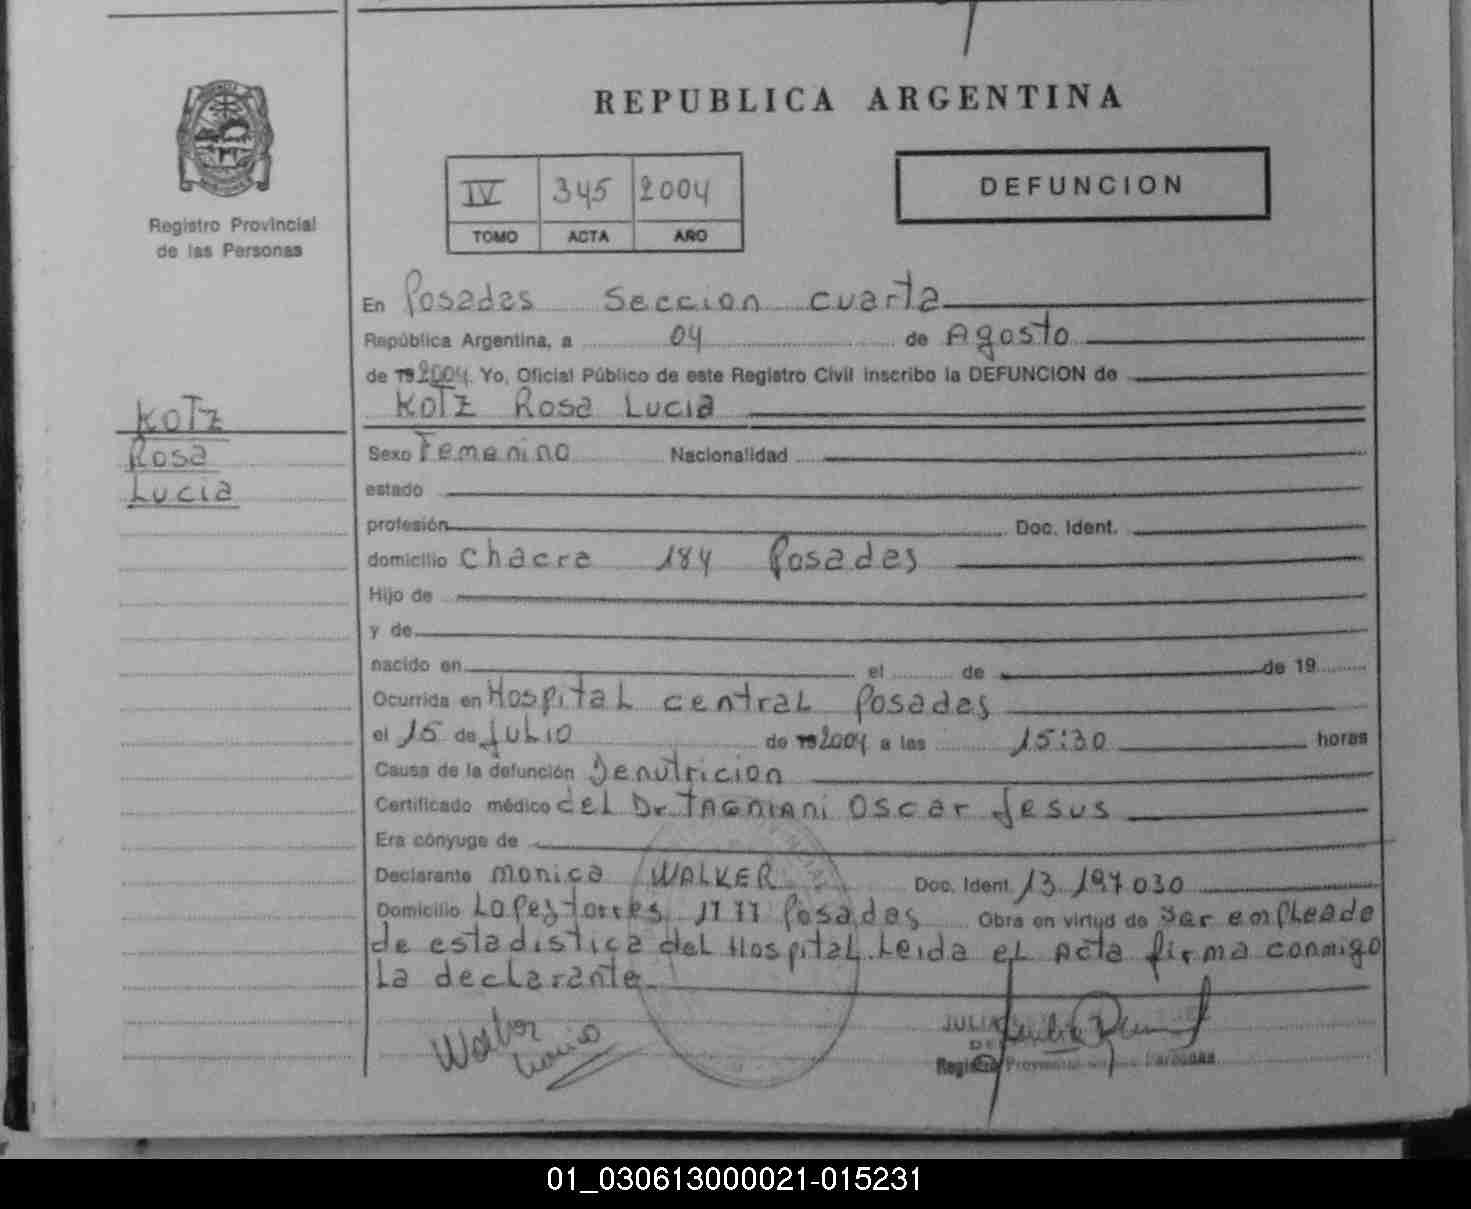 REPUBLICA ARGENTINA
Registro Provincial
de las Personas
IV 345 2004
TOMO ACTA AÑO
DEFUNCION
KOTZ
Rosa
Lucia
En Posadas Seccion cuarta
República Argentina, a 04 de Agosto
de 19 2004. Yo, Oficial Público de este Registro Civil inscribo la DEFUNCION de
KOTZ Rosa Lucia
Sexo Femenino Nacionalidad
estado
profesión Doc. Ident.
domicilio chacra 184 Posadas
Hijo de
y de
nacido en el de de 19
Ocurrida en Hospital central Posadas
el 15 de Julio de 19 2004 a las 15:30 horas
Causa de la defunción Denutricion
Certificado médico del Dr. TAGNIANI Oscar Jesus
Era cónyuge de
Declarante monica WALKER Doc. Ident. 13.197030
Domicilio Lopez torres Posadas Obra en virtud de ser empleada
de estadistica del Hospital. Leida el Acta firma conmigo
La declarante
JULIA
Registro Provincial Personas
01_030613000021-015231